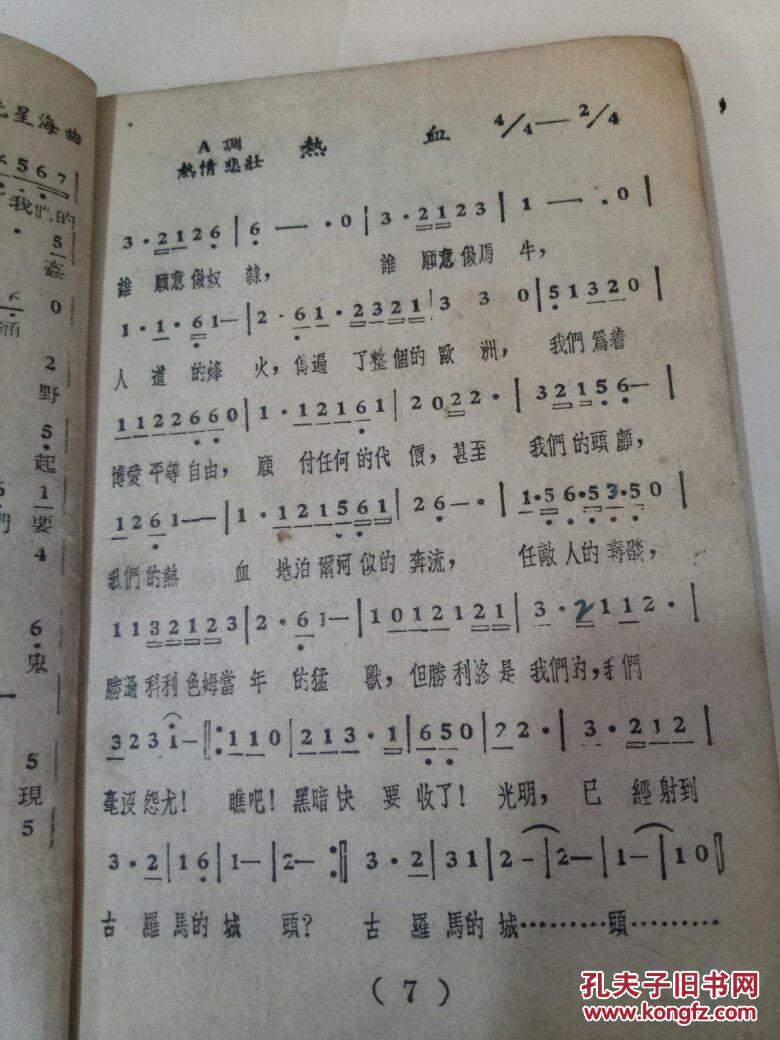 星海曲
6 5 6 7
我們的
5
姦
0
2
野
5
起
1
要
4
6
鬼
5
現
5
A調 熱血 4/4—2/4
熱情悲壯
3·2126|6—·0|3·2123|1—·0|
誰願意做奴隸， 誰願意做馬牛，
1·1·61—|2·61·2321|3 3 0|51320|
人道的烽火，傳遍了整個的歐洲， 我們爲着
1122660|1·12161|2022·|32156—|
博愛平等自由，願付任何的代價，甚至我們的頭顱，
1261——|1·121561|26—·|1·56·53·50|
我們的熱血地泊爾河似的奔流， 任敵人的毒燄，
11332123|2·61—|1012121|3·2112·|
勝過科利色姆當年的猛獸，但勝利終是我們的，我們
323i—‖:110|213·1|650|22·|3·212|
毫沒怨尤！ 瞧吧！黑暗快要收了！光明，已經射到
3·2|16|1—|2—:‖3·2|31|2-|2—|1—|10‖
古羅馬的城頭？ 古羅馬的城………頭………
(7)
孔夫子旧书网
www.kongfz.com